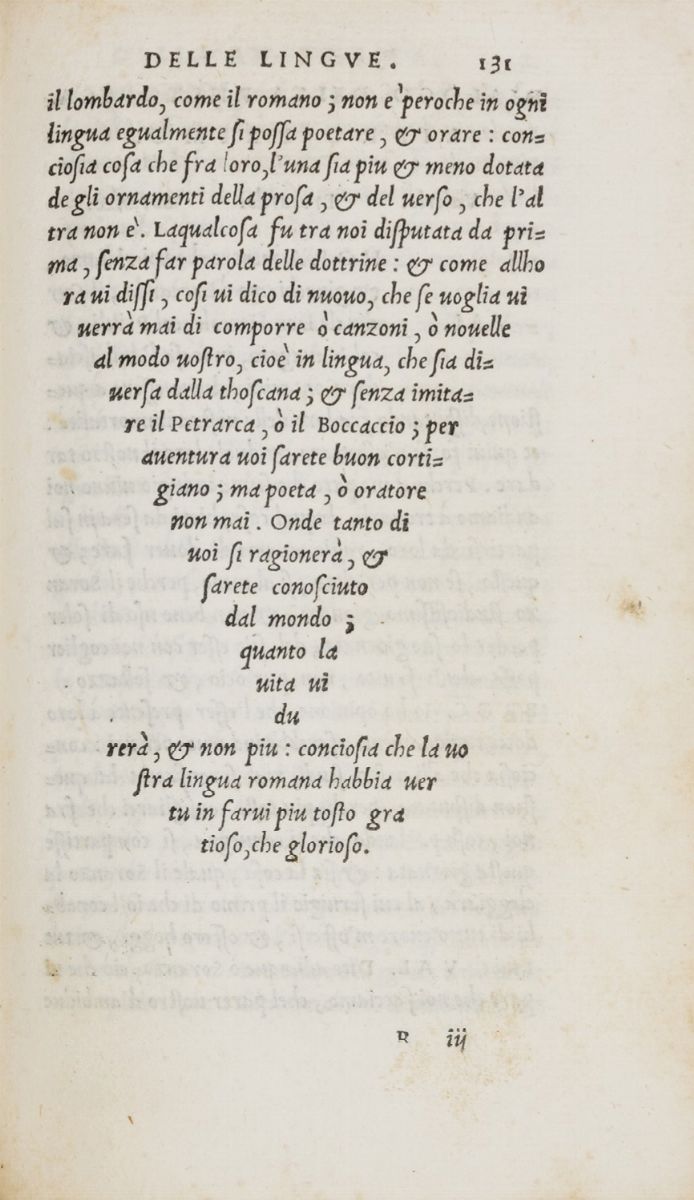 DELLE LINGVE. 131
il lombardo, come il romano; non e' peroche in ogni
lingua egualmente si possa poetare, & orare: con=
ciosia cosa che fra loro, l'una sia piu & meno dotata
de gli ornamenti della prosa, & del uerso, che l'al
tra non e'. Laqualcosa fu tra noi disputata da pri=
ma, senza far parola delle dottrine: & come allho
ra ui dissi, cosi ui dico di nuouo, che se uoglia ui
uerrà mai di comporre ò canzoni, ò nouelle
al modo uostro, cioè in lingua, che sia di=
uersa dalla thoscana; & senza imita=
re il Petrarca, ò il Boccaccio; per
auentura uoi sarete buon corti=
giano; ma poeta, ò oratore
non mai. Onde tanto di
uoi si ragionerà, &
sarete conosciuto
dal mondo;
quanto la
uita ui
du
rerà, & non piu: conciosia che la uo
stra lingua romana habbia uer
tu in farui piu tosto gra
tioso, che glorioso.
R iij